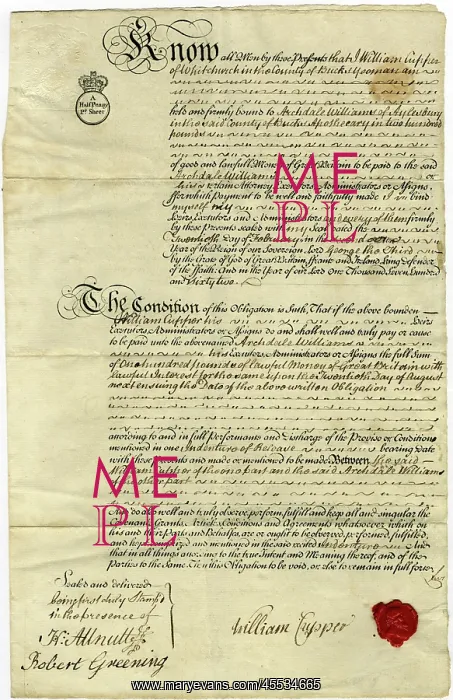 Know all Men by these Presents that I William Cupper
of Whitchurch in the County of Bucks Yeoman am
A
Half Penny
Pr Sheet
held and firmly bound to Archdale Williams of Aylesbury
in the said County of Bucks Apothecary in two hundred
pounds
of good and lawful Money of Great Britain to be paid to the said
Archdale Williams
or
his certain Attorney Executors Administrators or Assigns
For which Payment to be well and faithfully made I bind
myself my
Heirs Executors and Administrators and every of them firmly
by these Presents sealed with my Seal dated the
Twentieth Day of February in the second
Year of the Reign of our Sovereign Lord George the Third
by the Grace of God of Great Britain, France and Ireland, King, Defender
of the Faith. And in the Year of our Lord One Thousand Seven Hundred
and Sixty two
ME
PL
The Condition of this Obligation is Such, That if the above bounden
William Cupper his Heirs
Executors Administrators or Assigns do and shall well and truly pay or cause
to be paid unto the abovenamed Archdale Williams
his Executors Administrators or Assigns the full Sum
of One hundred pounds of lawful Money of Great Britain with
lawful Interest for the same upon the Twentieth Day of August
next ensuing the Date of the above written Obligation
according to and in full Performance and Discharge of the Proviso or Condition
mentioned in one Indenture of Release bearing Date
with these Presents and made or mentioned to be made Between the said
William Cupper of the one part and the said Archdale Williams
of the other part
ME
PL
And do also well and truly observe, perform, fulfill and keep all and singular the
Covenants, Grants, Articles, Conditions and Agreements whatsoever, which on
his and their Parts and Behalfes, are or ought to be observed, performed, fulfilled,
and kept, comprized and mentioned in the said recited Indenture
that in all things according to the true Intent and Meaning thereof, and of the
Parties to the Same. Then this Obligation to be void, or else to remain in full force
Sealed and delivered
being first duly Stampd
in the presence of
Allnutt
Robert Greening
William Cupper
www.maryevans.com/45534665